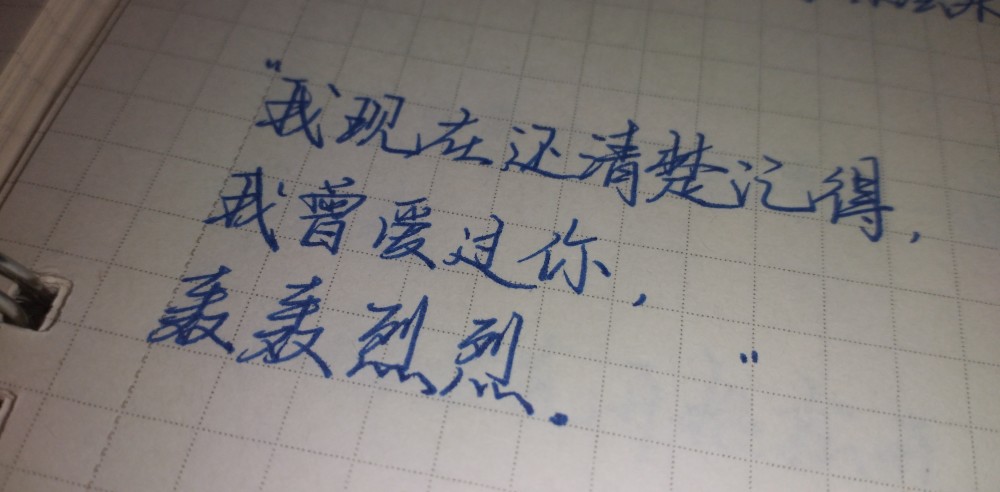 "我现在还清楚记得,
我曾爱过你,
轰轰烈烈."